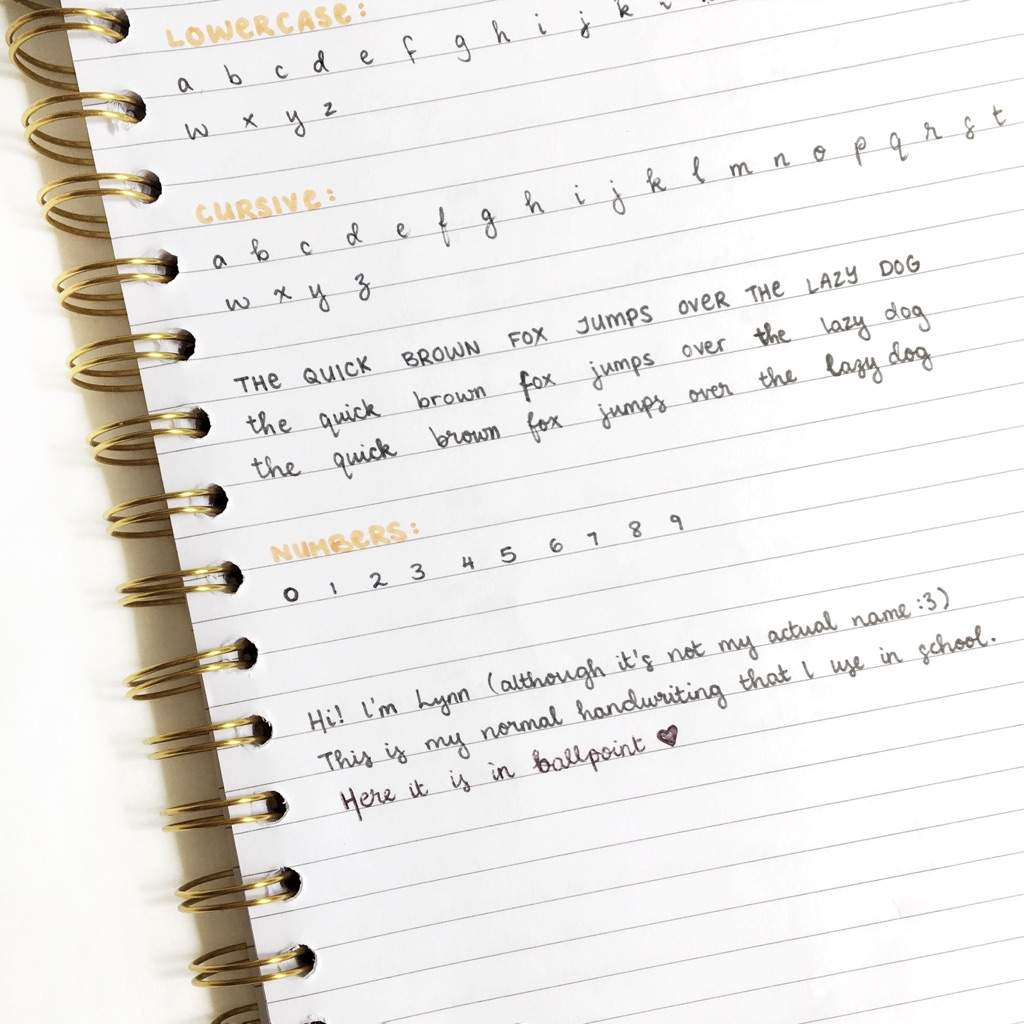 LOWERCASE:
a b c d e f g h i j k
w x y z
CURSIVE:
a b c d e f g h i j k l m n o p q r s t
w x y z
THE QUICK BROWN FOX JUMPS OVER THE LAZY DOG
the quick brown fox jumps over the lazy dog
the quick brown fox jumps over the lazy dog
NUMBERS:
0 1 2 3 4 5 6 7 8 9
Hi! I'm Lynn (although it's not my actual name :3)
This is my normal handwriting that I use in school.
Here it is in ballpoint ♥